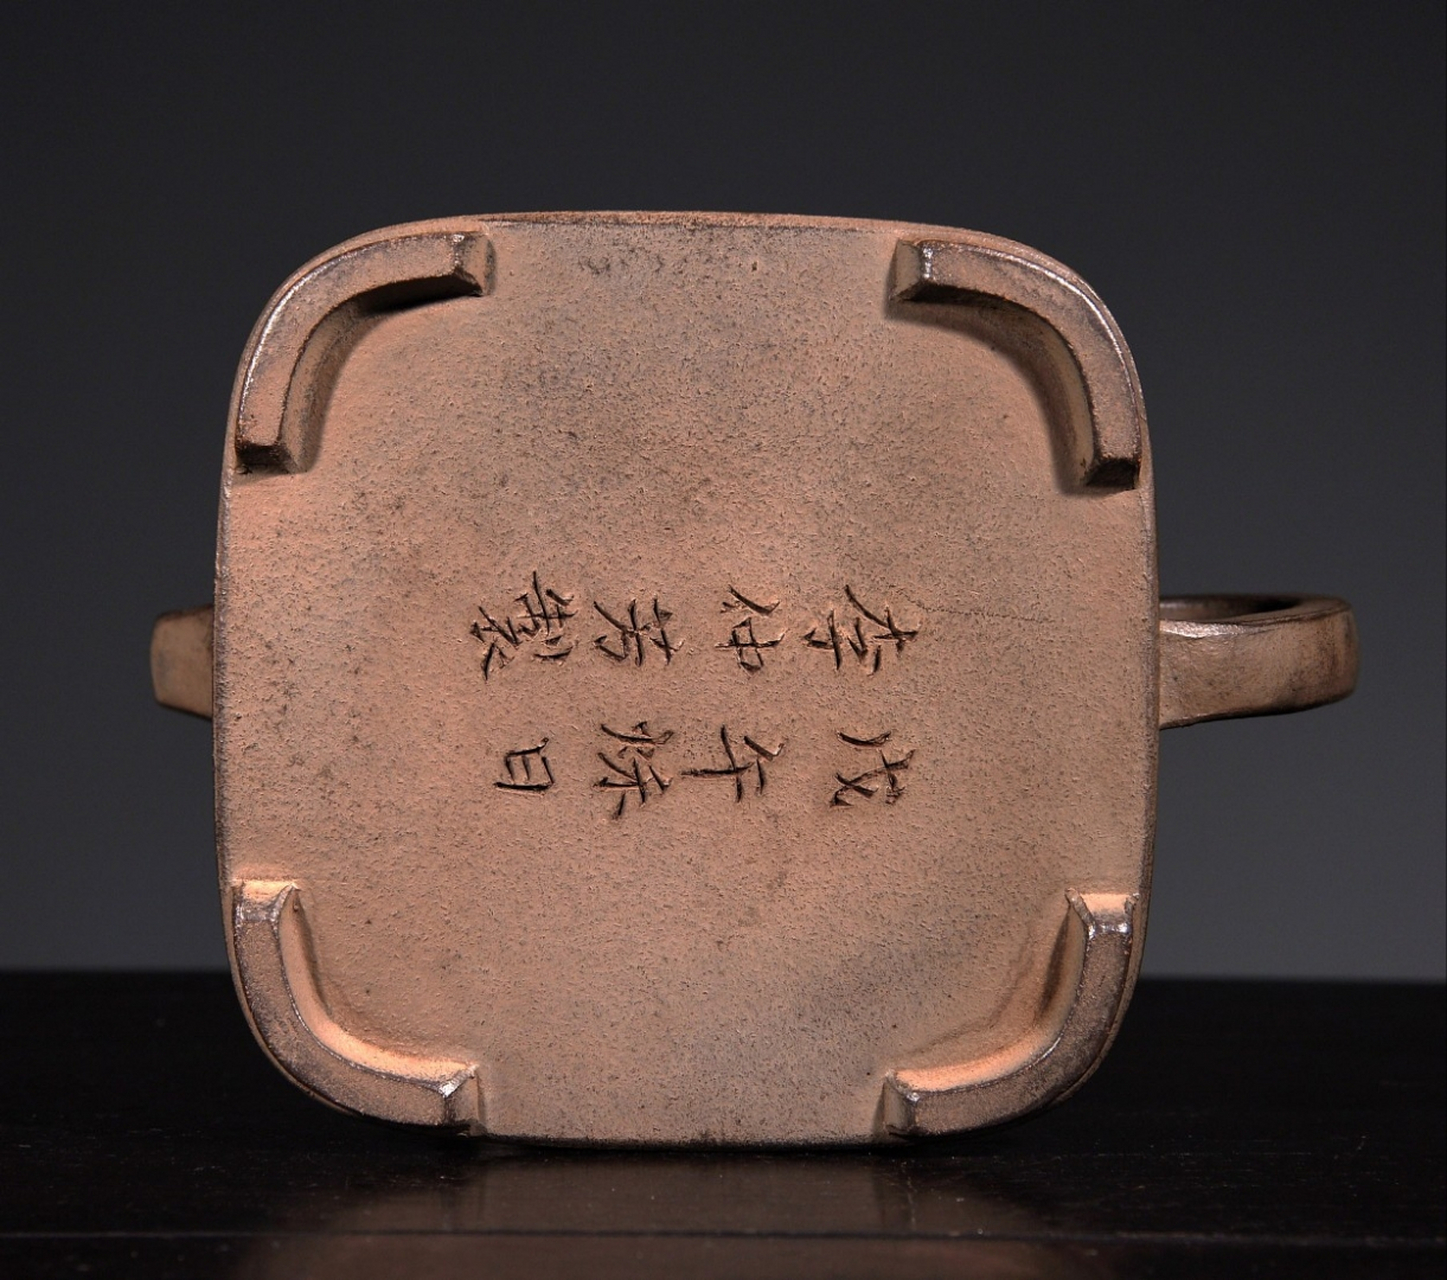 戊午秌日
李仲芳製